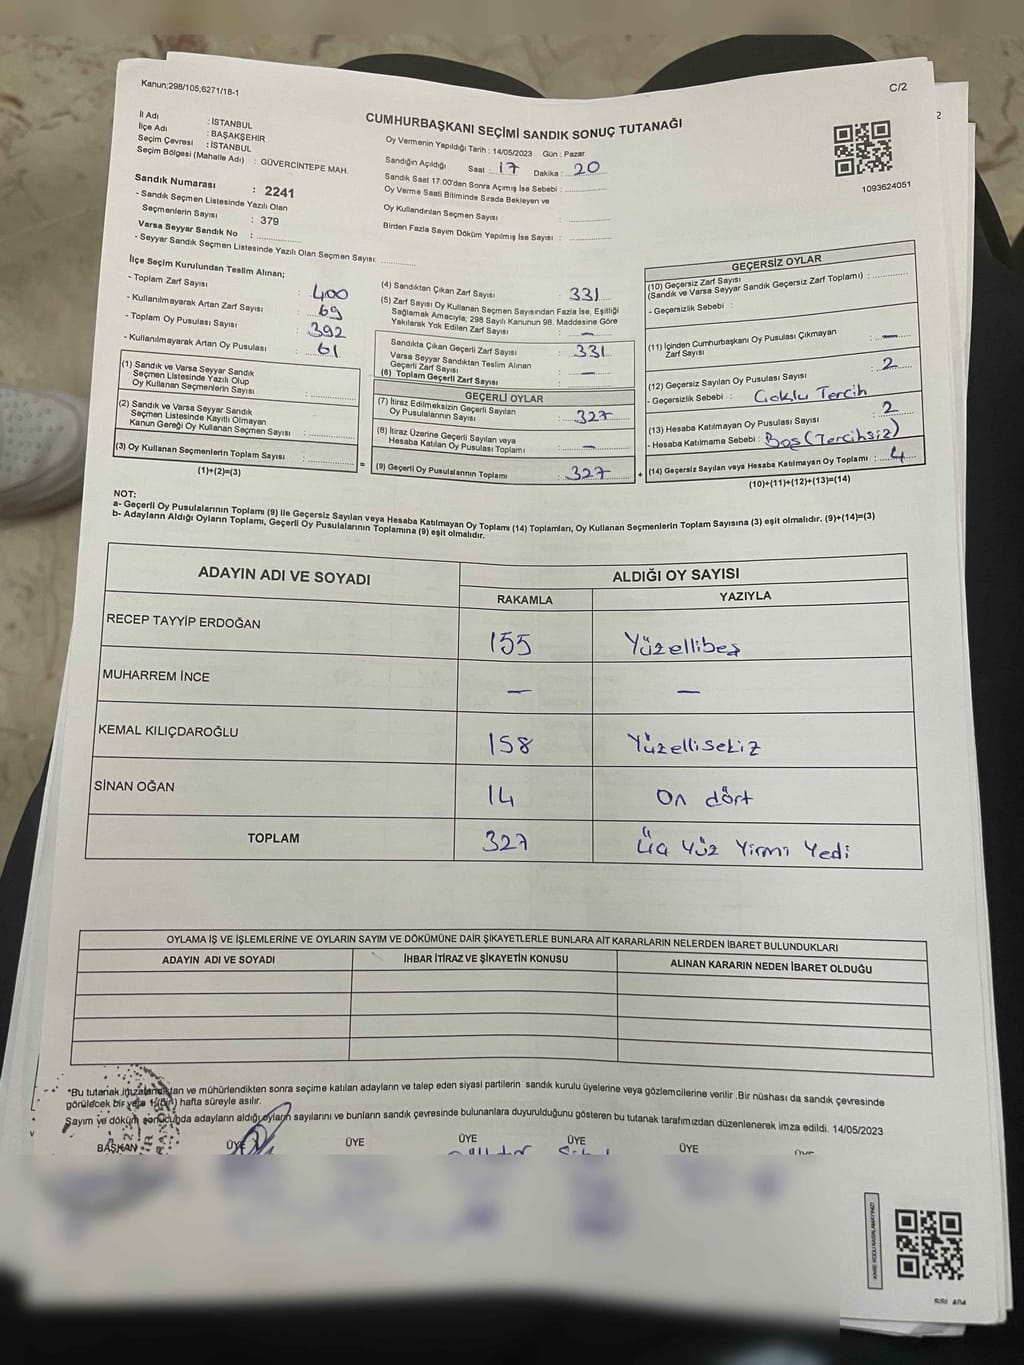 Kanun;298/105;6271/18-1
C/2
2
CUMHURBAŞKANI SEÇİMİ SANDIK SONUÇ TUTANAĞI
İl Adı : İSTANBUL
İlçe Adı : BAŞAKŞEHİR
Seçim Çevresi : İSTANBUL
Seçim Bölgesi (Mahalle Adı) : GÜVERCİNTEPE MAH.
Oy Vermenin Yapıldığı Tarih : 14/05/2023 Gün : Pazar
Sandığın Açıldığı Saat : 17 Dakika : 20
Sandık Saat 17.00'den Sonra Açımış İse Sebebi :
Oy Verme Saati Bitiminde Sırada Bekleyen ve
Oy Kullandırılan Seçmen Sayısı :
Birden Fazla Sayım Döküm Yapılmış İse Sayısı :
1093624051
Sandık Numarası : 2241
- Sandık Seçmen Listesinde Yazılı Olan
Seçmenlerin Sayısı : 379
Varsa Seyyar Sandık No :
- Seyyar Sandık Seçmen Listesinde Yazılı Olan Seçmen Sayısı:
İlçe Seçim Kurulundan Teslim Alınan;
- Toplam Zarf Sayısı : 400
- Kullanılmayarak Artan Zarf Sayısı : 69
- Toplam Oy Pusulası Sayısı : 392
- Kullanılmayarak Artan Oy Pusulası : 61
(1) Sandık ve Varsa Seyyar Sandık
Seçmen Listesinde Yazılı Olup
Oy Kullanan Seçmenlerin Sayısı :
(2) Sandık ve Varsa Seyyar Sandık
Seçmen Listesinde Kayıtlı Olmayan
Kanun Gereği Oy Kullanan Seçmen Sayısı :
(3) Oy Kullanan Seçmenlerin Toplam Sayısı :
(1)+(2)=(3)
=
(4) Sandıktan Çıkan Zarf Sayısı : 331
(5) Zarf Sayısı Oy Kullanan Seçmen Sayısından Fazla İse, Eşitliği
Sağlamak Amacıyla; 298 Sayılı Kanunun 98. Maddesine Göre
Yakılarak Yok Edilen Zarf Sayısı : —
Sandıkta Çıkan Geçerli Zarf Sayısı : 331
Varsa Seyyar Sandıktan Teslim Alınan
Geçerli Zarf Sayısı : —
(6) Toplam Geçerli Zarf Sayısı
GEÇERLİ OYLAR
(7) İtiraz Edilmeksizin Geçerli Sayılan
Oy Pusulalarının Sayısı : 327
(8) İtiraz Üzerine Geçerli Sayılan veya
Hesaba Katılan Oy Pusulası Toplamı : —
(9) Geçerli Oy Pusulalarının Toplamı : 327
+
GEÇERSİZ OYLAR
(10) Geçersiz Zarf Sayısı
(Sandık ve Varsa Seyyar Sandık Geçersiz Zarf Toplamı) :
- Geçersizlik Sebebi :
(11) İçinden Cumhurbaşkanı Oy Pusulası Çıkmayan
Zarf Sayısı : —
(12) Geçersiz Sayılan Oy Pusulası Sayısı : 2
- Geçersizlik Sebebi : Çoklu Tercih
(13) Hesaba Katılmayan Oy Pusulası Sayısı : 2
- Hesaba Katılmama Sebebi : Boş (Tercihsiz)
(14) Geçersiz Sayılan veya Hesaba Katılmayan Oy Toplamı : 4
(10)+(11)+(12)+(13)=(14)
NOT:
a- Geçerli Oy Pusulalarının Toplamı (9) ile Geçersiz Sayılan veya Hesaba Katılmayan Oy Toplamı (14) Toplamları, Oy Kullanan Seçmenlerin Toplam Sayısına (3) eşit olmalıdır. (9)+(14)=(3)
b- Adayların Aldığı Oyların Toplamı, Geçerli Oy Pusulalarının Toplamına (9) eşit olmalıdır.
ADAYIN ADI VE SOYADI ALDIĞI OY SAYISI
RAKAMLA YAZIYLA
RECEP TAYYİP ERDOĞAN 155 Yüzellibeş
MUHARREM İNCE — —
KEMAL KILIÇDAROĞLU 158 Yüzellisekiz
SİNAN OĞAN 14 On dört
TOPLAM 327 Üç Yüz Yirmi Yedi
OYLAMA İŞ VE İŞLEMLERİNE VE OYLARIN SAYIM VE DÖKÜMÜNE DAİR ŞİKAYETLERLE BUNLARA AİT KARARLARIN NELERDEN İBARET BULUNDUKLARI
ADAYIN ADI VE SOYADI İHBAR İTİRAZ VE ŞİKAYETİN KONUSU ALINAN KARARIN NEDEN İBARET OLDUĞU
*Bu tutanak imzalandıktan ve mühürlendikten sonra seçime katılan adayların ve talep eden siyasi partilerin sandık kurulu üyelerine veya gözlemcilerine verilir .Bir nüshası da sandık çevresinde
görülecek bir yere 1 (bir) hafta süreyle asılır.
Sayım ve döküm sonucunda adayların aldığı oyların sayılarını ve bunların sandık çevresinde bulunanlara duyurulduğunu gösteren bu tutanak tarafımızdan düzenlenerek imza edildi. 14/05/2023
BAŞKAN ÜYE ÜYE ÜYE ÜYE ÜYE